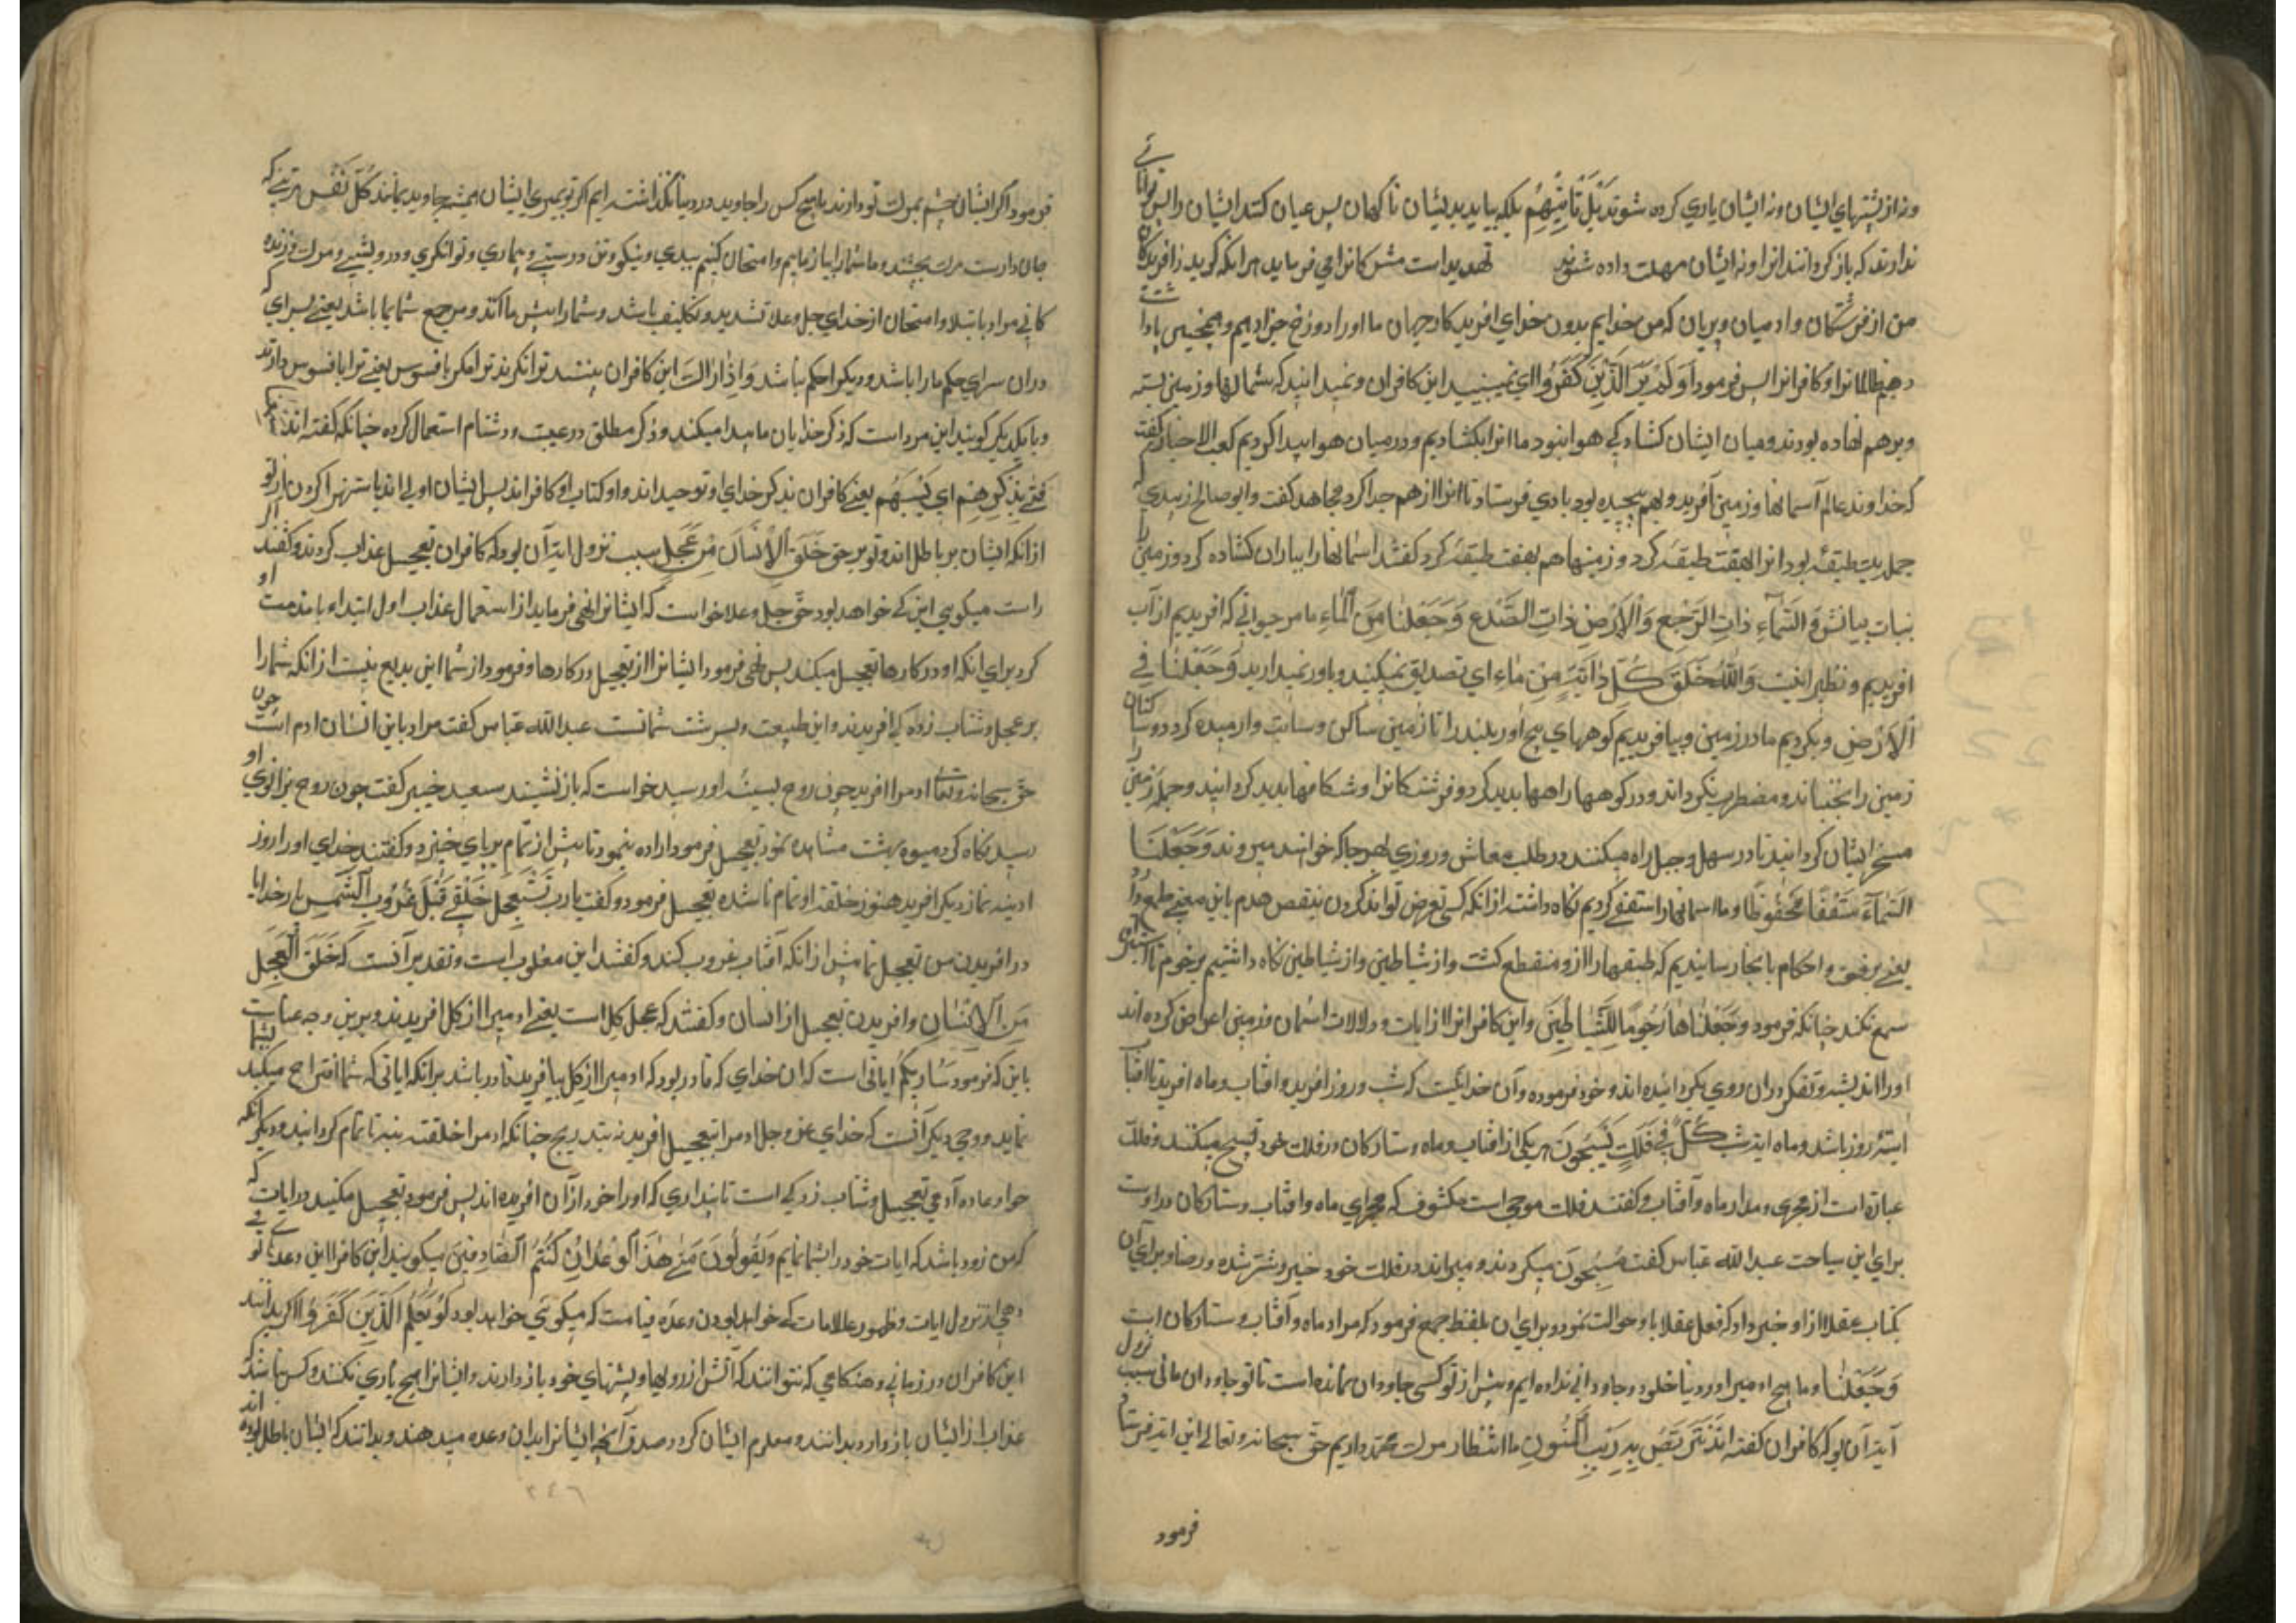 ونه از پشتهای ایشان ونه ایشان یاری کرده شوند بَلْ تَأْتِيهِمْ بلکه بیاید بدیشان ناکهان پس عیان کند ایشان را پس توانائی
ندارند که باز کردانند انرا ونه ایشان مهلت داده شوند تهدید است مشرکانرا می فرماید هرانکه کوید زافریدکان
من از فرشتکان وادمیان وپریان که من خدایم بدون خدای افریدکار جهان ما اورا دوزخ جزا دهیم وهمچنین پاداشت
دهیم ظالمانرا وکافرانرا پس فرمود أَوَلَمْ يَرَ الَّذِينَ كَفَرُوا ای نمیبینید این کافران ونمیدانید که شمالها وزمین بسته
وبرهم نهاده بودند ومیان ایشان کشادکی هوا نبود ما انرا بکشادیم ودرمیان هوا پیدا کردیم کعب الاحبار کفت
که خداوند عالم آسمانها وزمین آفرید وبهم پیچیده بود بادی فرستاد تا انرا از هم جدا کرد مجاهد کفت وابو صالح زسدی که
جمله یک طبقه بود انرا هفت طبقه کرد وزمینها هم هفت طبقه کرد کفتند اسمانهارا بباران کشاده کرد وزمین را
بنبات بیانش وَالسَّمَاءِ ذَاتِ الرَّجْعِ وَالْأَرْضِ ذَاتِ الصَّدْعِ وَجَعَلْنَا مِنَ الْمَاءِ ما هر حیوانی که افریدیم از آب
افریدیم ونظیر اینست وَاللَّهُ خَلَقَ كُلَّ دَابَّةٍ مِنْ مَاءٍ ای تصدیق نمیکنید وباور نمیدارید وَجَعَلْنَا فِي
الْأَرْضِ وبکردیم ما درزمین وبیافریدیم کوههای بیخ اور بلند را تا زمین ساکن وارمیده کرد
زمین را نجنباند ومضطرب نکرداند ودر کوهها راهها پدید کرد وشکافها پدید کردانید وجمله زمین را
مسخر ایشان کردانید تا در سهل وجبل راه میکنند در طلب معاش وروزی هرجا که خواهند میروند وَجَعَلْنَا
السَّمَاءَ سَقْفًا مَحْفُوظًا وما اسمانهارا سقفی کردیم نکاه داشته ازانکه کسی تعرض تواند کردن بنقص هدم باین معنی
یعنی برفعت واحکام بانجا رسانیدیم که طبقها از او منقطع کشت واز شیاطین نکاه داشتیم برجوم تا استراق
سمع نکند چنانکه فرمود وَجَعَلْنَاهَا رُجُومًا لِلشَّيَاطِينِ واین کافران ازایات ودلالات اسمان وزمین اعراض کرده اند
اورا اندیشه وتفکر دران روی بکردانیده اند وخود فرموده وآن خدائیست که شب وروز افرید وافتاب وماه افرید تا افتاب
ایته روز باشد وماه ایة شب كُلٌّ فِي فَلَكٍ يَسْبَحُونَ هریکی از افتاب وماه وستارکان در فلک خود تسبیح میکنند وفلک
عبارة است از مجری ومدار ماه وآفتاب وکفتند فلک موجی است مکشوف که مجرای ماه وافتاب وستارکان دراوست
برای این سیاحت عبد الله عباس کفت يَسْبَحُونَ میکردند در فلک خود خیر وشر
وبرای ان بلفظ جمع فرمود که مراد ماه وآفتاب وستارکان است
وَجَعَلْنَا وما هیچ ادمیرا در دنیا خلود وجاودانی نداده ایم وپیش از تو کسی جاودان نمانده است تا تو جاودان مانی سبب نزول
آیة آن بود که کافران کفته اند نَتَرَبَّصُ بِهِ رَيْبَ الْمَنُونِ ما انتظار مرک محمد داریم حق سبحانه وتعالی این ایة فرستاد
فرمود
فرمود اکر ایشان چشم بمرک تو دارند ما هیچ کس را جاوید در دنیا نکذاشته ایم اکر تو بمیری ایشان همیشه جاوید بمانند كُلُّ نَفْسٍ هر تنی که
جان دارست مرک بچشد وما شمارا بیازماییم وامتحان کنیم ببدی ونیکی وتن درستی وبیماری وتوانکری ودرویشی ومرک فرزند که
کافی مراد بابتلا وامتحان از خدای جل وعلا تشدید وتکلیف باشد وشمارا پیش ما آرند ومرجع شما بما باشد یعنی بسرای که
دران سرای حکم مارا باشد ودیکر را حکم نباشد وَإِذَا رَآكَ این کافران بینند ترا نکیرند ترا مکر بافسوس یعنی ترا بافسوس دارند
وبا یکدیکر کویند این مرد است که ذکر خدایان ما ببد میکند وذکر مطلق درغیبت ودشنام استعمال کرده چنانکه کفته اند
فَتًى يَذْكُرُهُمْ ای يَسُبُّهُمْ یعنی کافران بذکر خدای وتوحید او وکتاب او کافراند پس ایشان اولی اند باستهزا کردن از تو
ازانکه ایشان بر باطل اند وتو بر حق خُلِقَ الْإِنْسَانُ مِنْ عَجَلٍ سبب نزول ایة آن بود که کافران تعجیل عذاب کردند وکفتند اکر
راست میکویی این کی خواهد بود حق جل وعلا خواست که ایشانرا نهی فرماید از استعمال عذاب اول ابتدا بمذمت او
کرد برای انکه او در کارها تعجیل میکند پس نهی فرمود ایشانرا از تعجیل در کارها وفرمود از شما این بدیع نیست ازانکه شمارا
بر عجل وشتاب زدکی افریدند واین طبیعت وسرشت شماست عبد الله عباس کفت مراد باین انسان ادم است چون
حق سبحانه وتعالی ادم را افرید چون روح بسینه او رسید خواست که باز نشیند سعید جبیر کفت چون روح بزانوی او
رسید نکاه کرد میوه بهشت مشاهده نمود تعجیل فرمود اراده نمود تا پیش از تمام برپای خیزد وکفتند خدای اورا روز
ادینه نماز دیکر افرید هنوز خلقت او تمام ناشده تعجیل فرمود وکفت یارب تَسْتَعْجِلْ خَلْقِي قَبْلَ غُرُوبِ الشَّمْسِ بار خدایا
در افریدن من تعجیل نما پیش ازانکه آفتاب غروب کند وکفتند این مقلوب است وتقدیر آنست که خَلَقَ الْعَجَلَ
مِنَ الْإِنْسَانِ وافریدن تعجیل از انسان وکفتند که عجل کل است یعنی ادمیرا از کل افریدند وبرین وجه عنایت
باین که فرمود سَأُرِيكُمْ آیاتی است که ان خدای که قادر بود که ادمیرا از کل بیافرید قادر باشد برانکه ایاتی که شما اقتراح میکنید بشما
نماید ووجهی دیکر آنست که خدای عز وجل ادم را بتعجیل افرید نه بتدریج چنانکه ادمرا خلقت بنیة تا تمام کردانید ودیکر انکه
عاده آدمی تعجیل وشتاب زدکی است تا پنداری که اورا خود از آن افریده اند پس فرمود تعجیل مکنید درایات که
که من زود باشد که ایات خودرا بشما نمایم وَيَقُولُونَ مَتَى هَذَا الْوَعْدُ إِنْ كُنْتُمْ صَادِقِينَ میکویند این کافران این وعده تو کی
از نزول ایات وظهور علامات که خواهد بودن وعده قیامت که میکوئی خواهد بود لَوْ يَعْلَمُ الَّذِينَ كَفَرُوا اکر بدانند
این کافران در زمانی وهنکامی که نتوانند که آتش از رویها وپشتهای خود باز دارند وایشانرا هیچ یاری نکنند وکس نباشد که
عذاب از ایشان باز دارد بدانند ومعلوم ایشان کردد صدق آنچه ایشانرا بدان وعده میدهند وبدانند که ایشان باطل بوده اند
۲۴۶